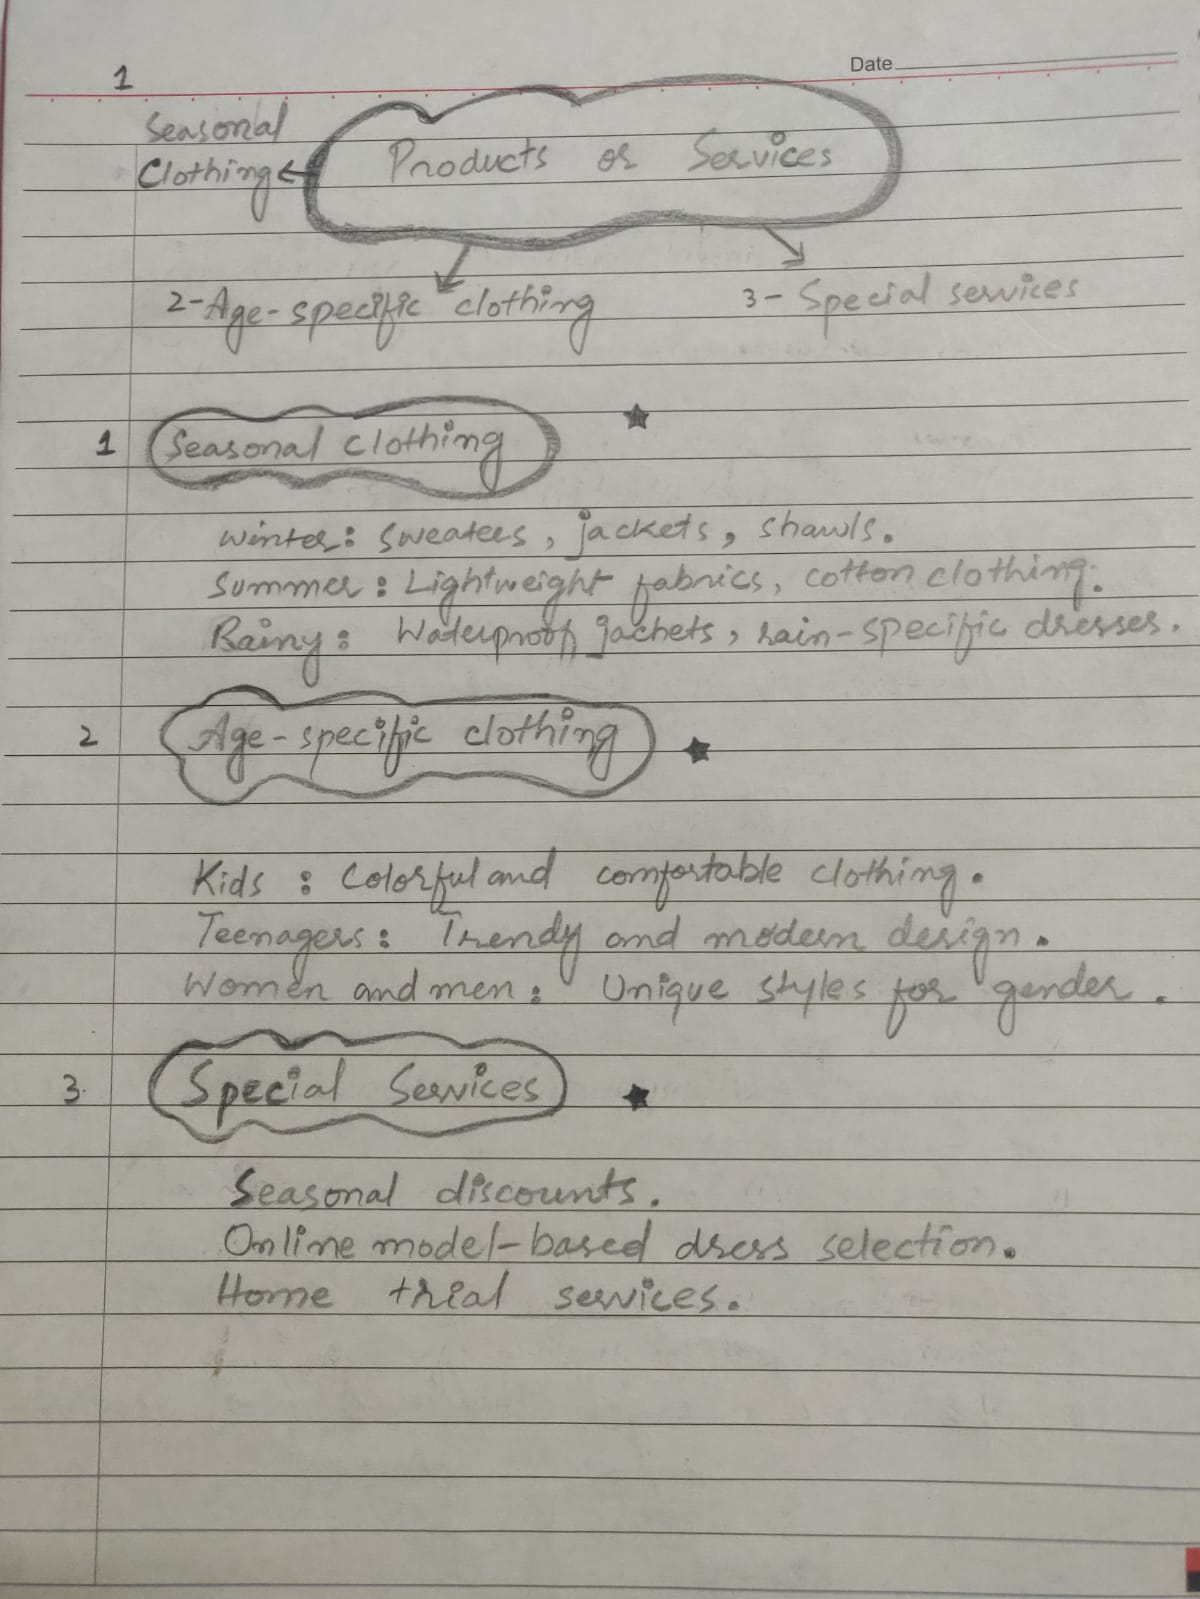 1
Date
Seasonal
Clothing
Products or Services
2-Age-specific clothing
3- Special services
1 Seasonal clothing
Winter: Sweaters, jackets, shawls.
Summer: Lightweight fabrics, cotton clothing.
Rainy: Waterproof jackets, rain-specific dresses.
2 Age-specific clothing
Kids : Colorful and comfortable clothing.
Teenagers: Trendy and modern design.
Women and men: Unique styles for gender.
3. Special Services
Seasonal discounts.
Online model-based dress selection.
Home trial services.